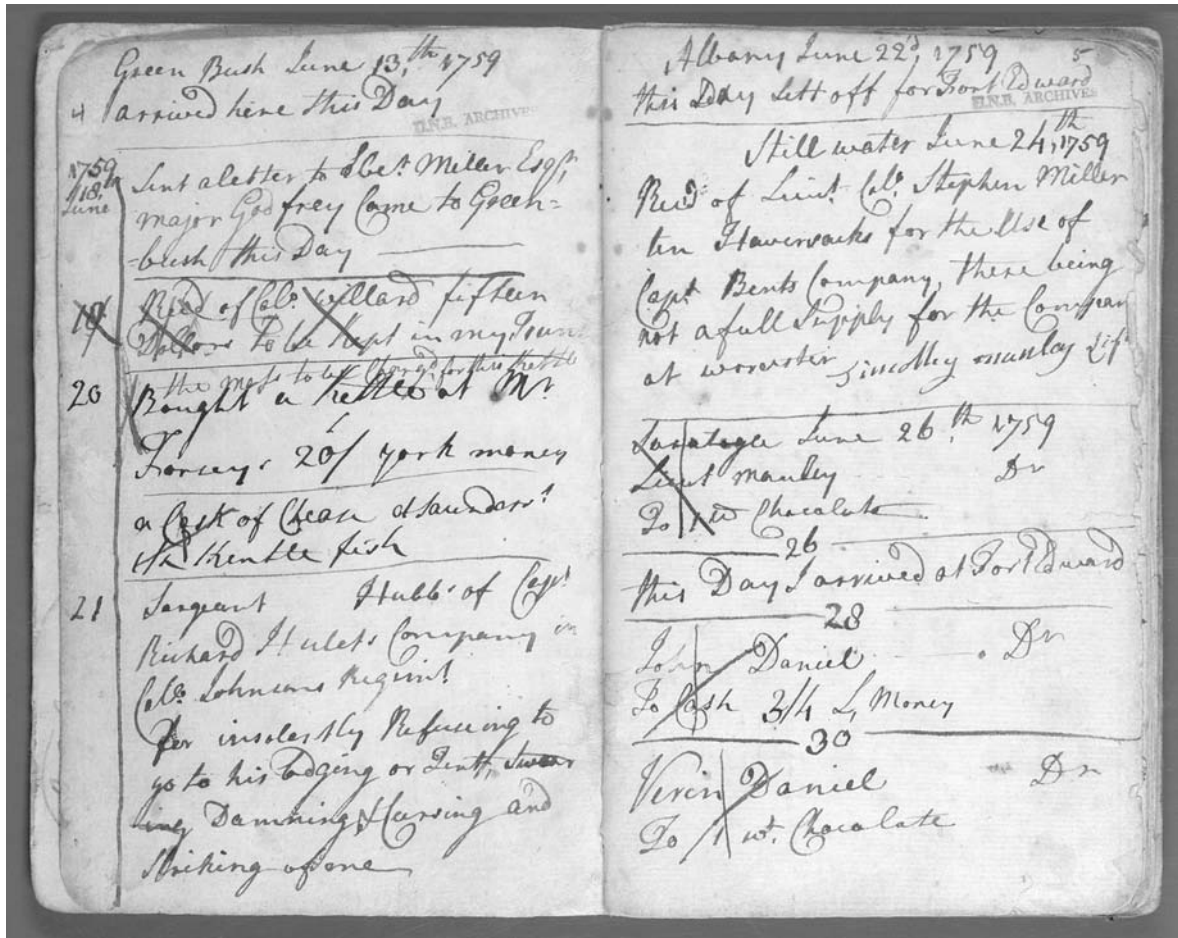 Green Bush June 13,th 1759
4 arrived here this Day
D.N.B. ARCHIVES
1759
18th
June
Sent a letter to Ebe.r Miller Esqr,
major Godfrey Came to Green=
-bush this Day
19 Recd of Colo. willard fifteen
Dollors to be kept in my
the mess to be Charg'd for this Kettle
20 Bought a Kettle at Mr.
Forseys 20/ york money
a Cask of Chease at Saunders's
Kentle fish
21 Sargeant Hubbs of Capt
Richard Hulets Company in
Colo. Johnsons Regimt.
for insolestly Refusing to
go to his lodging or Tent, Swear
ing Damning Cursing and
Striking of one
Albany June 22d, 1759 5
this Day Sett off for Fort Edward
D.N.B. ARCHIVES
Still water June 24,th 1759
Recd. of Lieut. Colo. Stephen Miller
ten Haversacks for the Use of
Capt. Bents Company, there being
not a full Supply for the Compan
at worcester
manley
Saratoga June 26,th 1759
Lieut manley Dr
To 1 wt Chocolate
26
this Day I arrived at Fort Edward
28
John Daniel Dr
To Cash 3/4 L, Money
30
Daniel Dr
To 1 wt. Chocolate